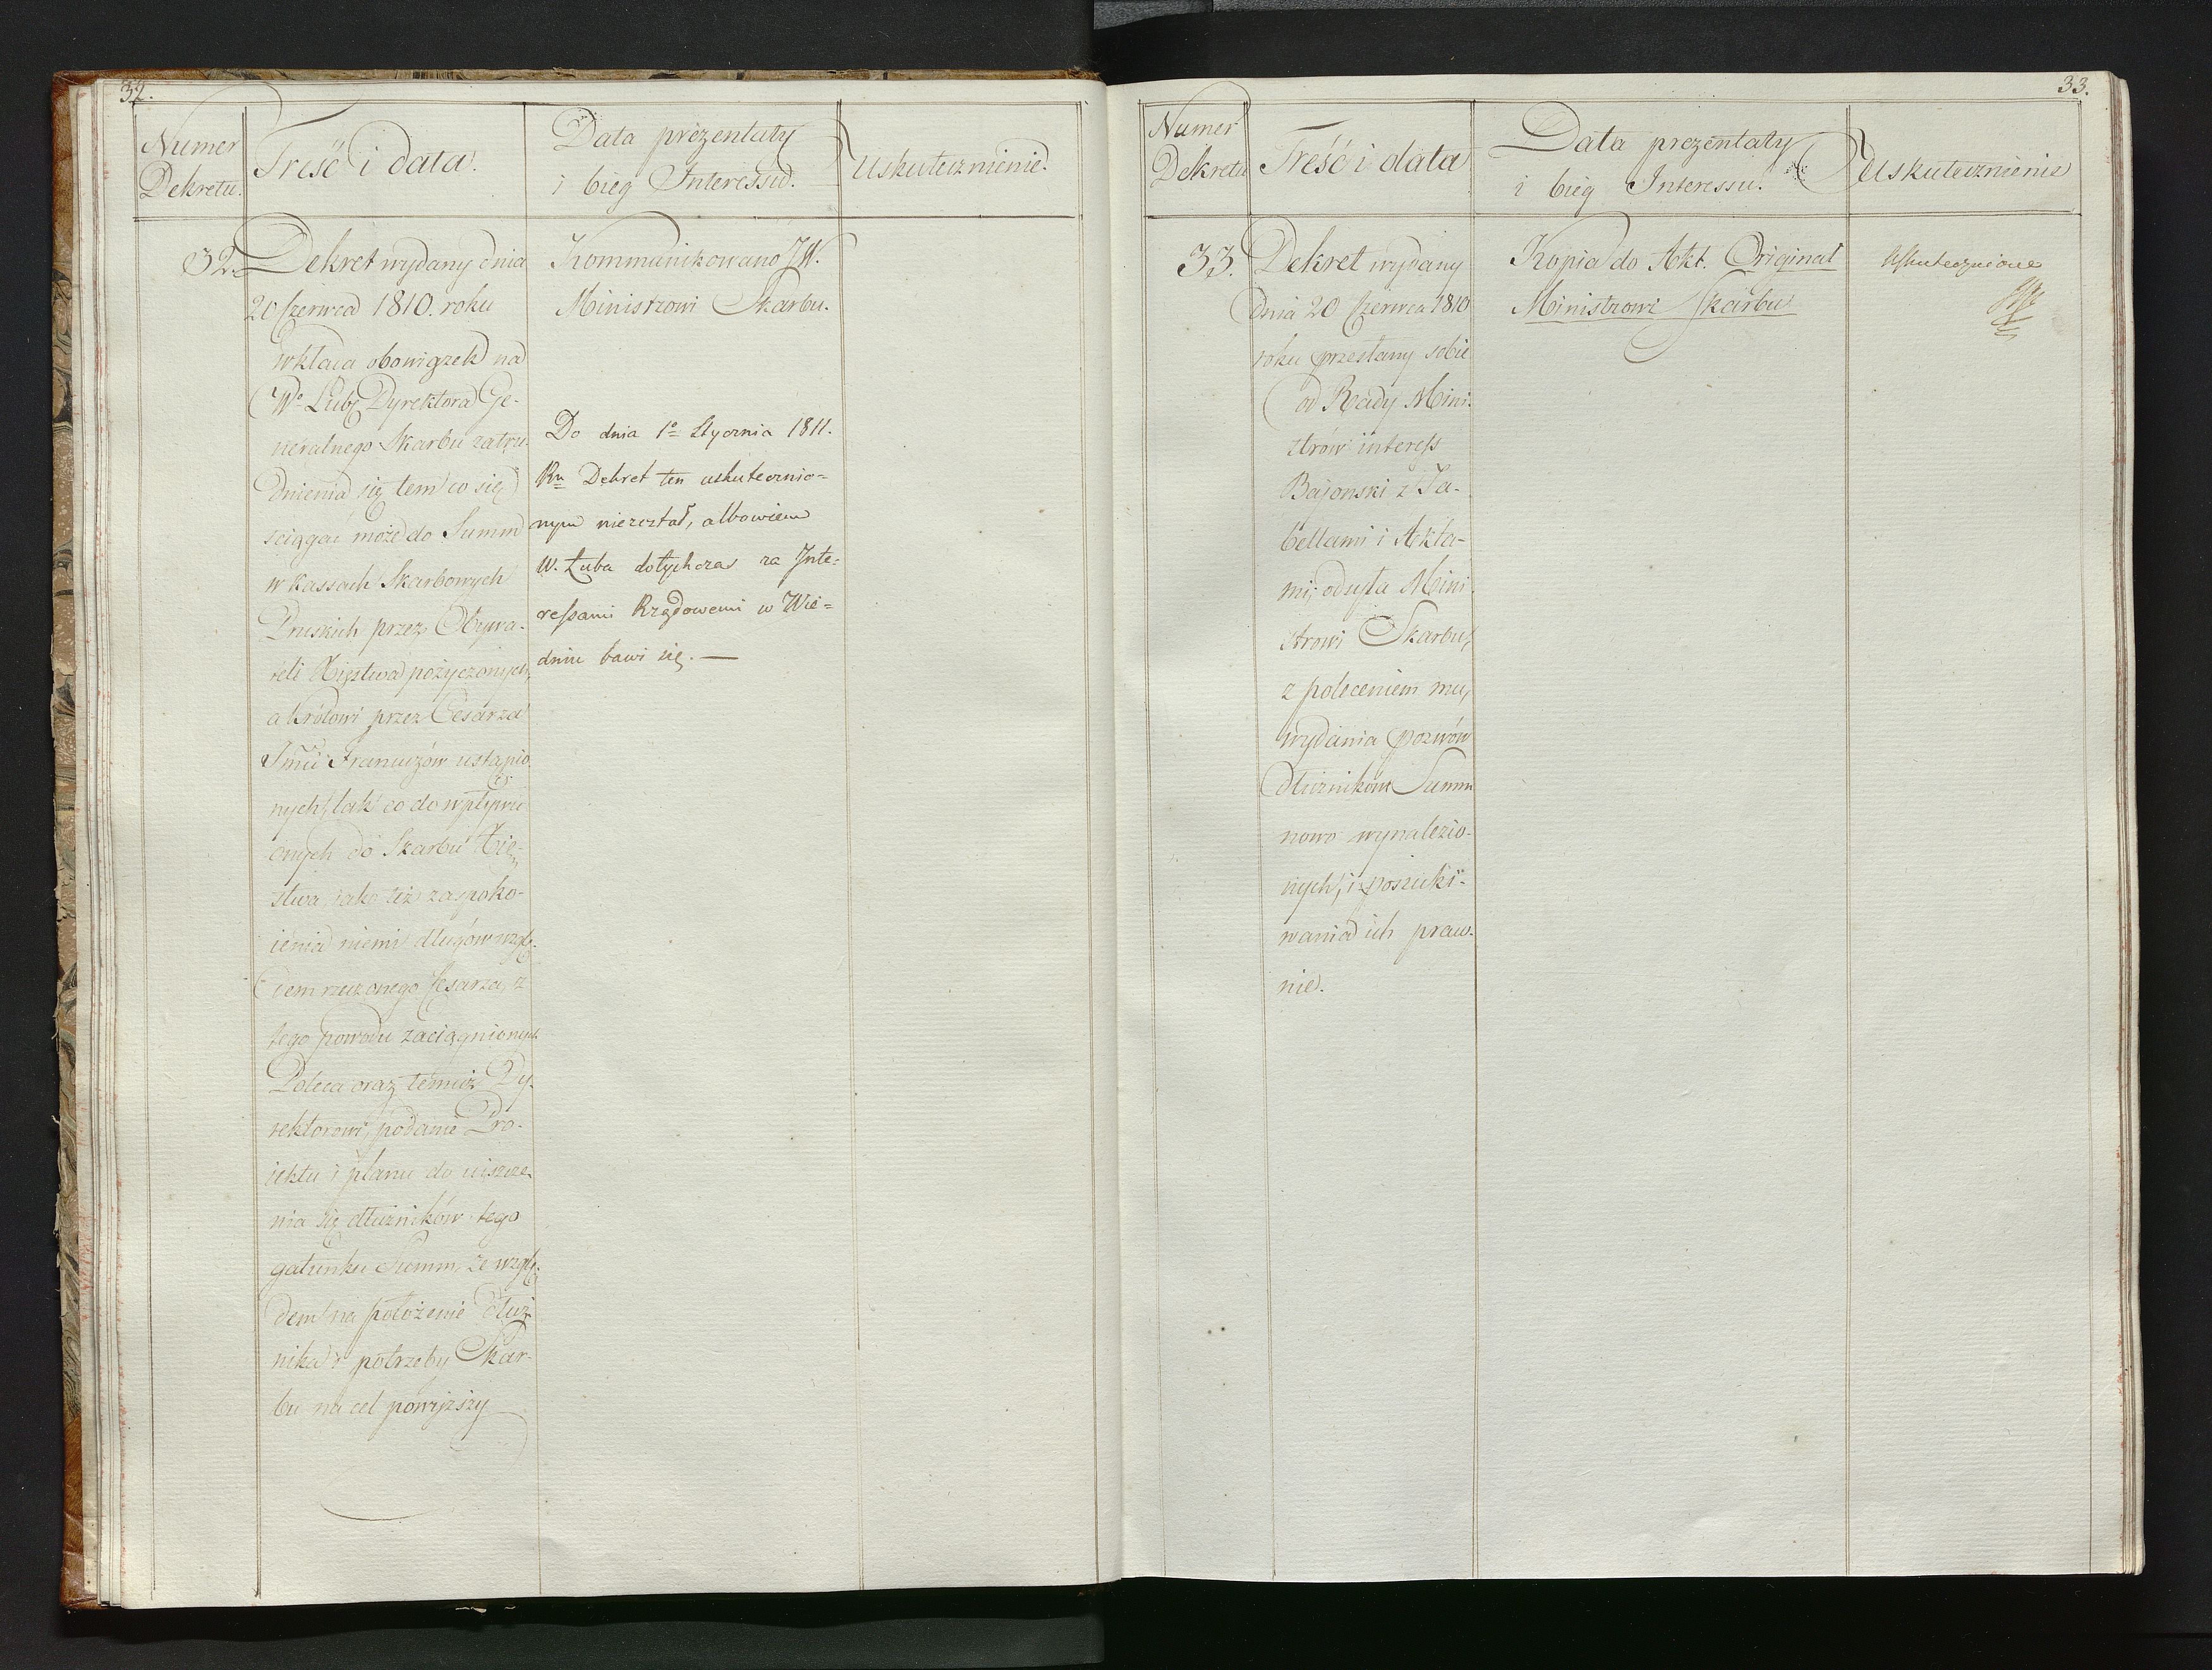 32.
Numer
Dekretu.
Treść i data.
Data prezentaty
i bieg Interessu.
Uskutecznienie.
32. Dekret wydany dnia
20 Czerwca 1810. roku
wkłada obowiązek na
Wo Lubę Dyrektora Ge-
neralnego Skarbu zatru-
dnienia się tem co się
ściągać może do Summ
w kassach Skarbowych
Pruskich przez Obywa-
teli Xięstwa pożyczonych,
a Królowi przez Cesarza
Jmci Francuzów ustąpio
nych, tak co do wpływu
onych do Skarbu Xię-
stwa, iako też zaspoko-
ienia niemi długów wzglę-
dem rzeczonego Cesarza, z
tego powodu zaciągnionych
Poleca oraz temuż Dy-
rektorowi, podanie Pro-
iektu i planu do uiszcze-
nia się dłużników tego
gatunku Summ, ze wzglę-
dem na położenie dłuż-
nika i potrzeby Skar-
bu na cel powyższy
Kommunikowano JW.
Ministrowi Skarbu.
Do dnia 1o Stycznia 1811.
Ru Dekret ten uskutecznio=
nym niezostał, albowiem
W. Łuba dotychczas za Inte=
ressami Rządowemi w Wie=
dniu bawi się. —
33.
Numer
Dekretu
Treść i data
Data prezentaty
i bieg Interessu.
Uskutecznienie
33. Dekret wydany
dnia 20 Czerwca 1810
roku przesłany sobie
od Rady Mini-
strów interess
Bajonski z Ta-
bellami i Akta-
mi, odsyła Mini
strowi Skarbu,
z poleceniem mu,
wydania pozwów
dłużnikom Summ
nowo wynalezio-
nych, i poszuki-
wania ich praw-
nie.
Kopia do Akt. Originał
Ministrowi Skarbu
Uskutecznione